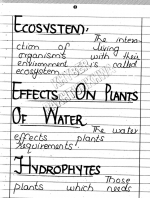 ECOSYSTEM:
The intera-
ction of living
organisms with their
environment is called
ecosystem
EFFECTS ON PLANTS
OF WATER
The water
effects plants
requirements.
HYDROPHYTES
Those
plants which needs